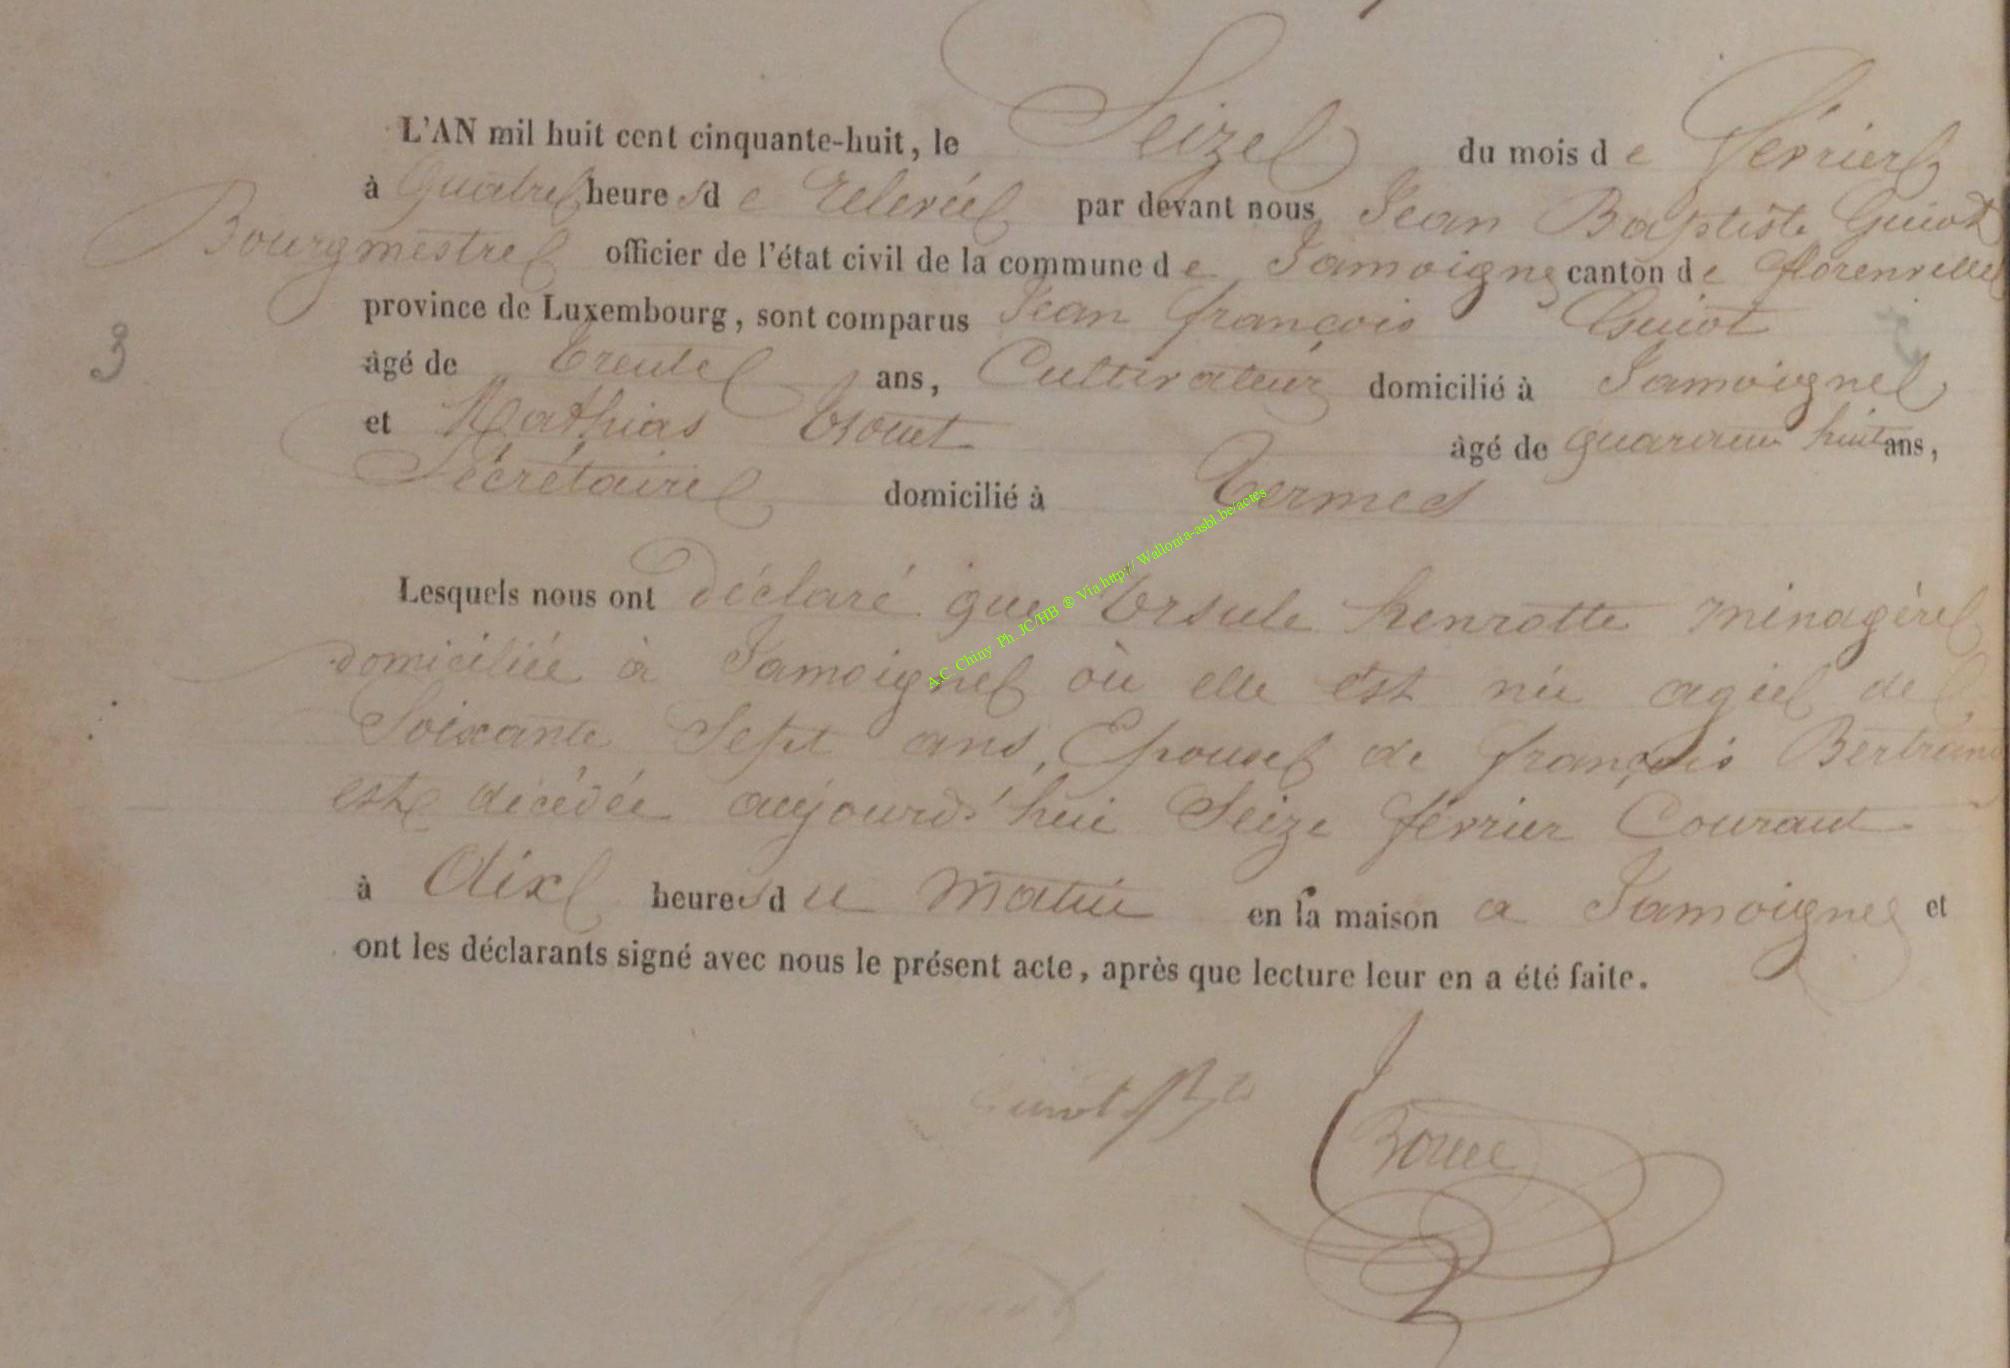 L'AN mil huit cent cinquante-huit, le Seize du mois de Février
à Quatre heures de relevée par devant nous Jean Baptiste Guiot
Bourgmestre officier de l'état civil de la commune de Jamoigne canton de florenville
province de Luxembourg, sont comparus Jean françois Guiot
âgé de trente ans, Cultivateur domicilié à Jamoigne
et Mathias âgé de quarante huit ans,
Sécrétaire domicilié à Termes
Lesquels nous ont déclaré que Ursule henrotte ménagère
domiciliée à Jamoigne où elle est née agée de
Soixante Sept ans, Epouse de françois Bertrand
est décédée aujourd'hui Seize février Courant
à dix heures du matin en la maison a Jamoigne et
ont les déclarants signé avec nous le présent acte, après que lecture leur en a été faite.
3
A.C. Chiny Ph. JC/HB ® Via http// Wallonia-asbl.be/actes